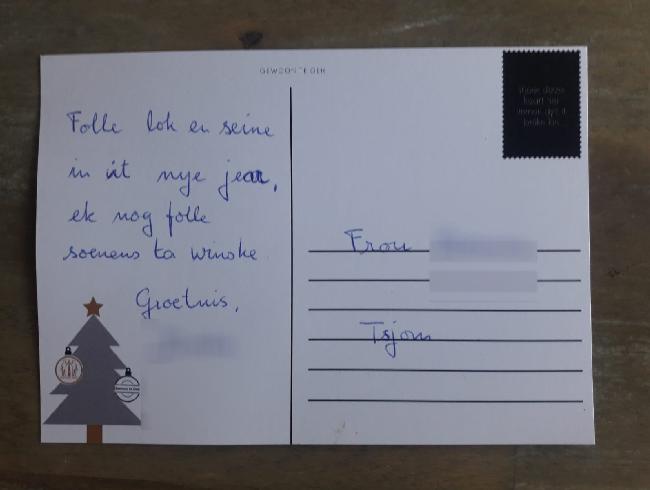 Folle lok en seine
in it nye jear,
ek nog folle
soenens ta winske
Groetnis,
Frou
Tsjom